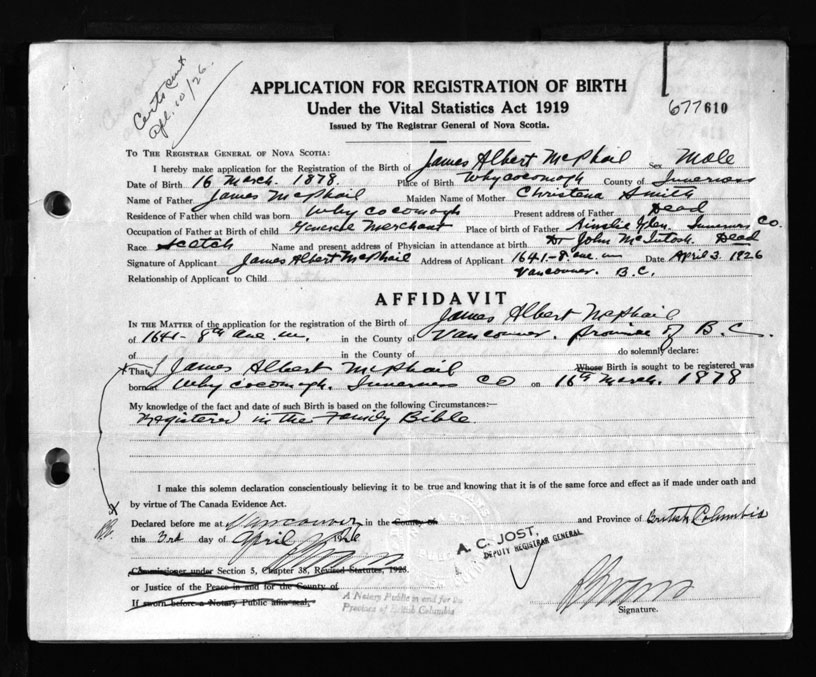 Certs sent
Apl. 10/26.
APPLICATION FOR REGISTRATION OF BIRTH
Under the Vital Statistics Act 1919
677610
Issued by The Registrar General of Nova Scotia.
TO THE REGISTRAR GENERAL OF NOVA SCOTIA:
I hereby make application for the Registration of the Birth of James Albert McPhail Sex Male
Date of Birth 16 March. 1878. Place of Birth Whycocomagh County of Inverness
Name of Father James McPhail Maiden Name of Mother Christena Smith
Residence of Father when child was born Whycocomagh Present address of Father Dead
Occupation of Father at Birth of child General Merchant Place of birth of Father Ainslie Glen. Inverness Co.
Race Scotch Name and present address of Physician in attendance at birth Dr John McIntosh. Dead
Signature of Applicant James Albert McPhail Address of Applicant 1641-8. ave. w Date April 3. 1926
Relationship of Applicant to Child Vancouver. B.C.
AFFIDAVIT
IN THE MATTER of the application for the registration of the Birth of James Albert McPhail
of 1641- 8th ave. w. in the County of Vancouver. province of B.C.
of in the County of do solemnly declare:
That I James Albert McPhail Whose Birth is sought to be registered was
born at Whycocomagh. Inverness Co on 16th March. 1878
My knowledge of the fact and date of such Birth is based on the following Circumstances:—
Registered in the Family Bible.
I make this solemn declaration conscientiously believing it to be true and knowing that it is of the same force and effect as if made under oath and
by virtue of The Canada Evidence Act.
Declared before me at Vancouver in the County of and Province of British Columbia
this 3rd day of April
A. C. JOST,
DEPUTY REGISTRAR GENERAL
Commissioner under Section 5, Chapter 38, Revised Statutes, 1923.
or Justice of the Peace in and for the County of
If sworn before a Notary Public affix seal,
A Notary Public in and for the
Province of British Columbia
Signature.